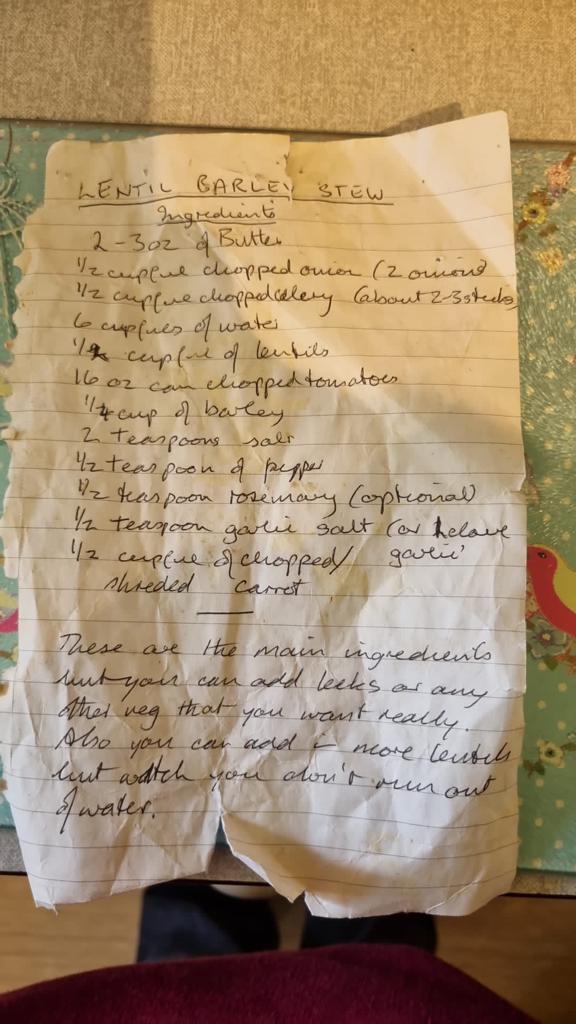 LENTIL BARLEY STEW
Ingredients
2-3oz of Butter
1/2 cupful chopped onion (2 onions)
1/2 cupful chopped celery (about 2-3 sticks)
6 cupfuls of water
cupful of lentils
16 oz can chopped tomatoes
1/4 cup of barley
2 teaspoons salt
1/2 teaspoon of pepper
1/2 teaspoon rosemary (optional)
1/2 teaspoon garlic salt (or 1 clove
1/2 cupful of chopped/ garlic
shreded carrot
These are the main ingredients
but you can add leeks or any
other veg that you want really.
Also you can add in more lentils
but watch you don't run out
of water.